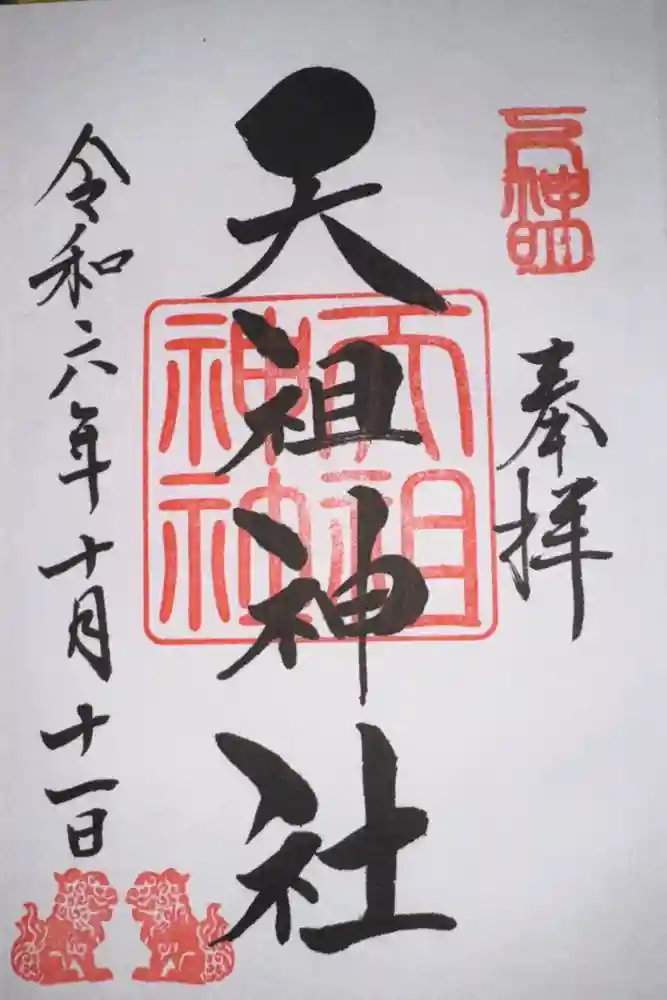 奉拝
天祖神社
天祖
神社
令和六年十月十一日